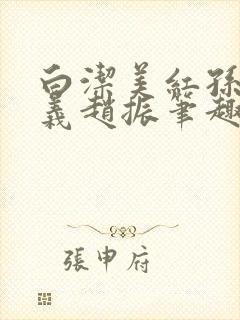 白潔美紅孫
義趙振筆趣
張申府